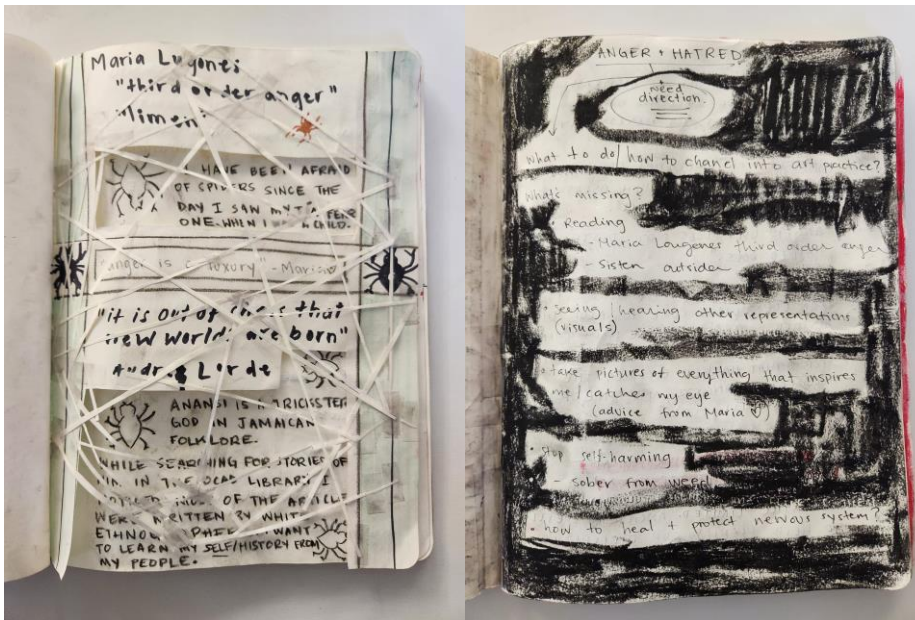 Maria Lugones
"third order anger"
"limen"
HAVE BEEN AFRAID
OF SPIDERS SINCE THE
DAY I SAW MY FEAR
ONE. WHEN I A CHILD.
"anger is a luxury" - Maria
"it is out of chaos that
new worlds are born"
Audre Lorde
ANANSI IS A TRICISTER
GOD IN JAMAICAN
FOLKLORE.
WHILE SEARCHING FOR STORIES OF
IN THE OCAD LIBRARY I
NOTICED MOST OF THE ARTICLES
WERE WRITTEN BY WHITE
WANT
TO LEARN MY SELF/HISTORY FROM
MY PEOPLE.
ANGER + HATRED
need
direction.
what to do/how to chanel into art practice?
what's missing?
· Reading
- Maria Lougenes third order anger
- Sisten outsider
· seeing/hearing other representations
(visuals)
· take pictures of everything that inspires
me/catches my eye
(advice from Maria
· stop self-harming
- sober from weed
· how to heal + protect nervous system?